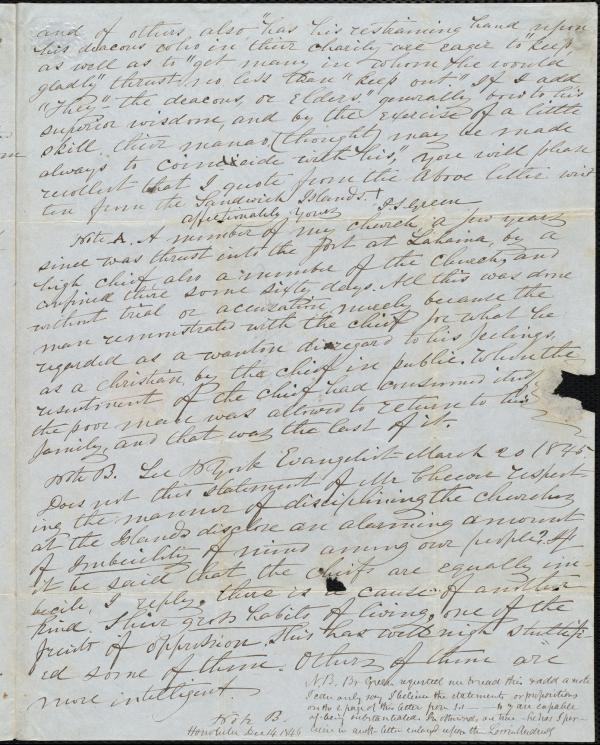 and of others also "has his restraining hand upon
his deacons who in their charity are eager to "keep
as well as to "get many in whom he would
gladly" thrust no less than "keep out" If I add
"They" the deacons, or Elders, "generally bow to his
superior wisdom, and by the exercise of a little
skill their manao (thought) may be made
always to coincide with his," you will please
recollect that I quote from the above letter writ
ten from the Sandwich Islands.
affectionately Yours J. S. Green
Note A. A member of my church, a few years
since was thrust into the fort at Lahaina, by a
high chief also a member of the church, and
confined there some sixty days. All this was done
without trial or accusation, merely because the
man remonstrated with the chief for what he
regarded as a wanton disregard to his feelings,
as a Christian, by the chief in public. When the
resentment of the chief had consumed itself
the poor man was allowed to return to his
family, and that was the last of it.
Note B. See N York Evangelist March 20 1845
Does not this statement of Mr Cheever respect-
ing the manner of disciplining the churches
at the Islands disclose an alarming amount
of Imbecility of mind among our people? If
it be said that the chiefs are equally im-
becile, I reply, there is a cause of another
kind. Their gross habits of living, one of the
fruits of oppression. This has well nigh stultifi-
ed some of them. Others of them are
more intelligent.
Note B.
Honolulu Dec 14 1846
N.B. Br Green requested me to read this & add a note
I can only say I believe the statements or propositions
on the 2 page of this letter from 1st to 4 are capable
of being substantiated. The others, as time
in another letter enlarged upon the Lorrin Andrews